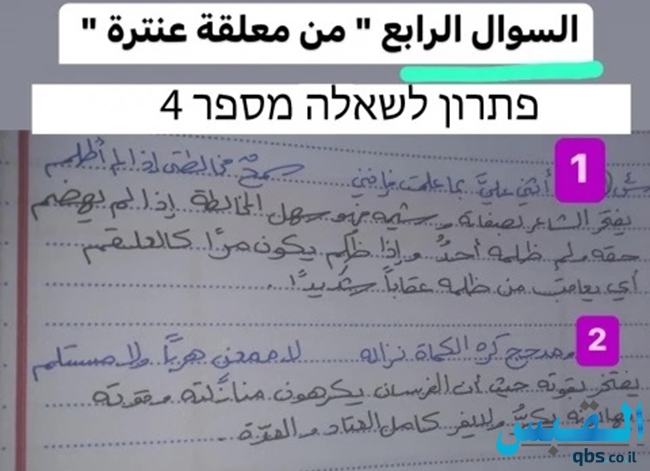 السوال الرابع " من معلقة عنترة "
פתרון לשאלה מספר 4
1
أثني عليّ بما علمت فإنني سمحٌ مخالطتي إذا لم أظلم
يفتخر الشاعر بصفاته وشيمه فهو سهل المخالطة إذا لم يهضم
حقه ولم ظلمه أحدٌ وإذا ظُلم يكون مرًا كالعلقم
أي يعاقب من ظلمه عقاباً شديدًا.
2
ومدجج كره الكماة نزاله لا ممعن هرباً ولا مستسلم
يفتخر بقوته حيث أن الفرسان يكرهون منازلته وقوته
يكرّ كامل العتاد والعدّة.
القبس
qbs.co.il